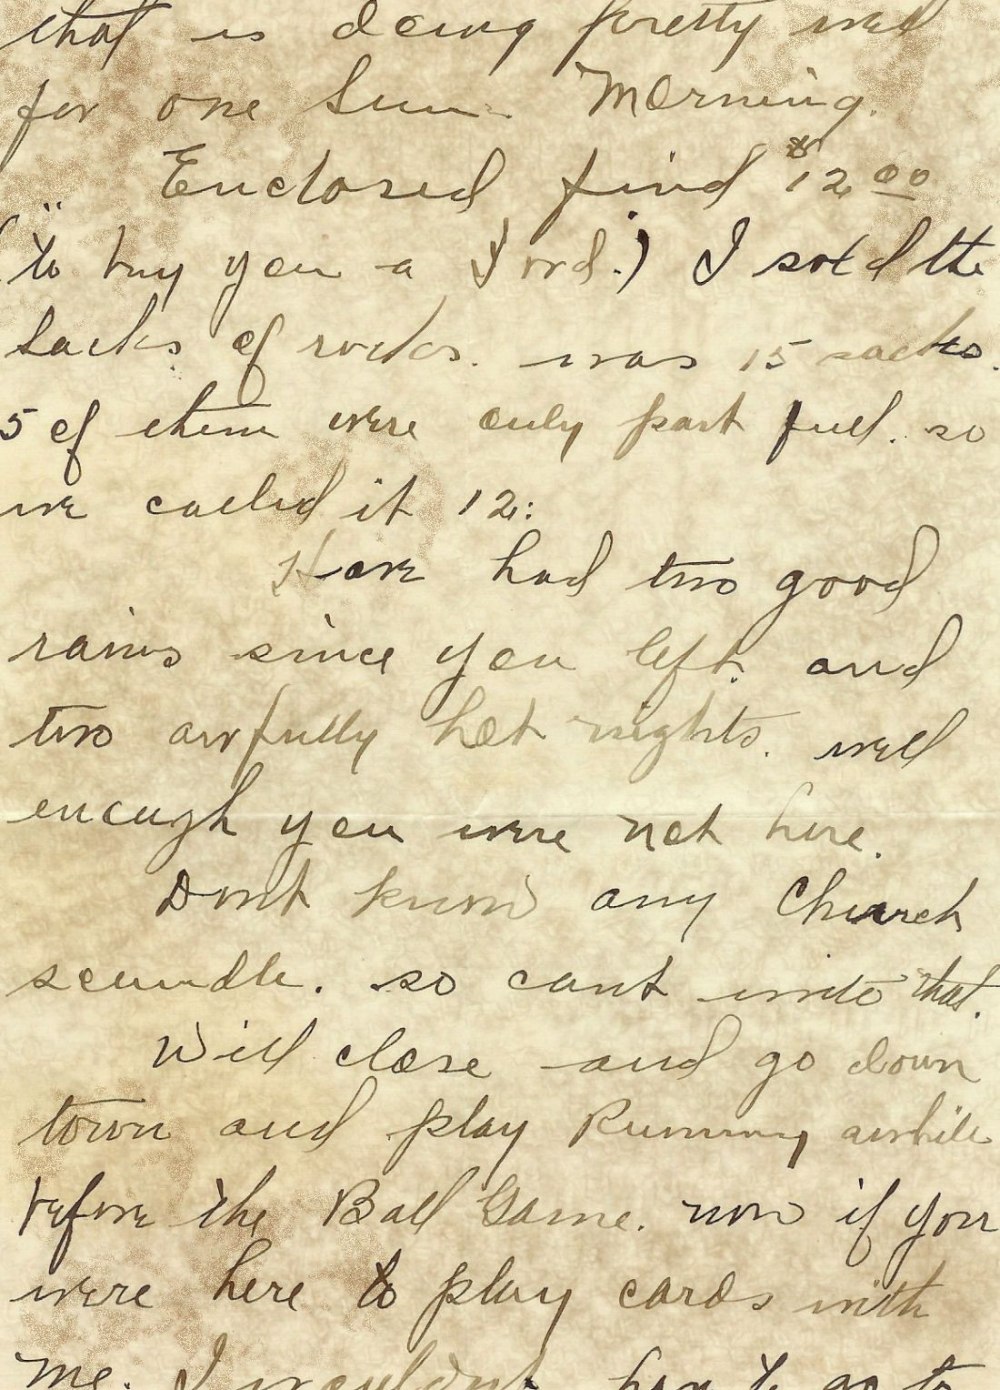 that is doing pretty well
for one Sun. Morning.
Enclosed find $12.00
(to buy you a Ford.) I sold the
sacks of rocks. was 15 sacks.
5 of them were only part full. so
we called it 12:
Have had two good
rains since you left. and
two awfully hot nights. well
enough you were not here.
Dont know any Church
scundle. so cant write that.
Will close and go down
town and play Rummy awhile
before the Ball Game. now if you
were here to play cards with
me. I wouldnt have to go to